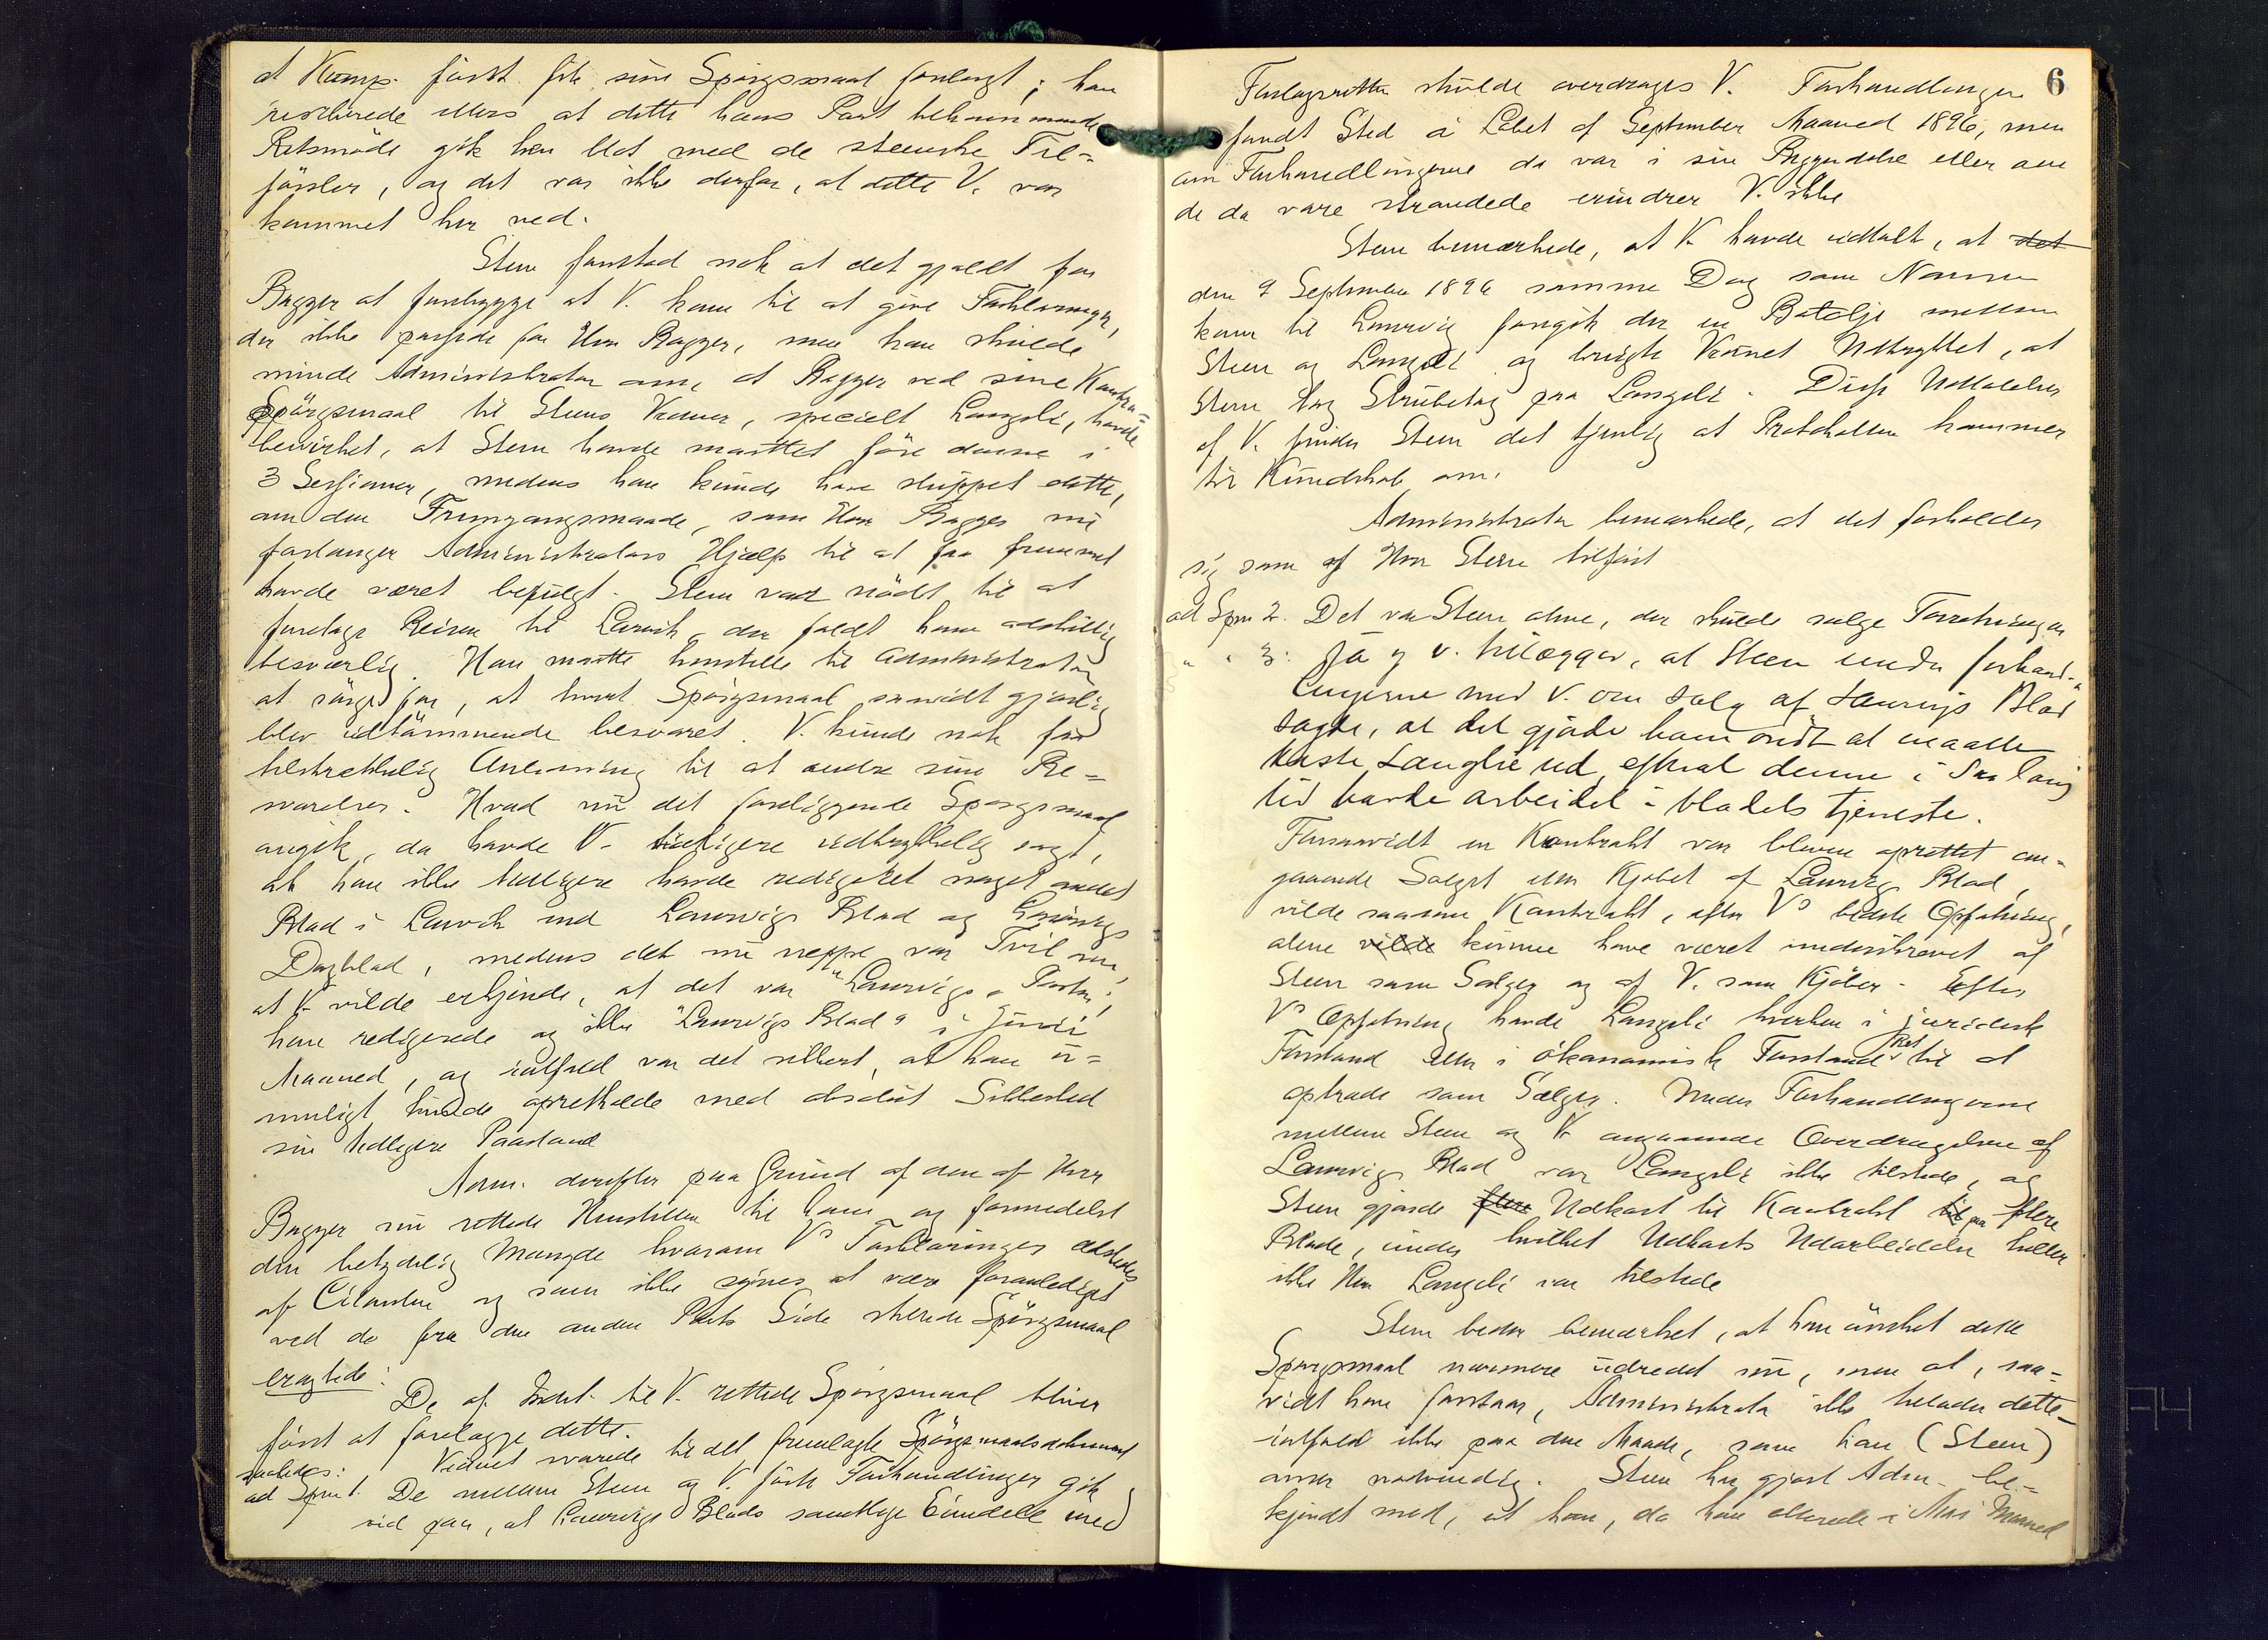 at Kump. först fik sine Spörgsmaal forelagt; han
reserverede ellers at dette hans Part tilkommende
Retsmöde gik hen blot med de steenske Til-
försler, og det var ikke derfor, at dette V. var
kommet her ned.
Steen forstod nok at det gjaldt for
Bagger at forebygge at V. kom til at give Forklaringer,
der ikke passede for Herr Bagger, men han skulde
minde Administrator om, at Bagger ved sine Kontra-
Spörgsmaal til Steens Vidner, specielt Langeli, havde
bevirket, at Steen havde maattet före denne i
3 Sessioner, medens han kunde have sluppet dette,
om den Fremgangsmaade, som Herr Bagger nu
forlanger Administrators Hjælp til at faa fremmet
havde været befulgt. Steen var nödt til at
foretage Reisen til Larvik, der faldt ham adskillig
besværlig. Han maatte henstille til Administrator
at sörge for, at hvert Spörgsmaal saavidt gjörlig
blev udtömmende besvaret. V. kunde nok faa
tilstrækkelig Anledning til at ændre sine Be-
svarelser. Hvad nu det foreliggende Spörgsmaal
angik, da havde V. tidligere udtrykkelig sagt,
at han ikke tidligere havde redigeret noget andet
Blad i Larvik end Laurvigs Blad og Laurvigs
Dagblad, medens det nu neppe var Tvil om,
at V. vilde erkjende, at det var "Laurvigs Posten",
han redigerede og ikke "Laurvigs Blad" i Juni
Maaned, og ialfald var det sikkert, at han u-
muligt kunde opretholde med absolut Sikkerhed
sin tidligere Paastand
Adm. derefter paa Grund af den af Herr
Bagger nu rettede Henstillen til ham og formedelst
den betydelig Mængde hvorom V's Forklaringer æskedes
af Citanten og som ikke synes at være foranlediget
ved de fra den anden Parts Side skeede Spörgsmaal
eragtede:
De af Indst. til V. rettede Spörgsmaal bliver
först at forelægge dette.
Vidnet svarede til det fremlagte Spörgsmaalsdokument
saaledes:
ad Spm 1. De mellem Steen og V. förte Forhandlinger gik
ud paa, at Laurvigs Blads samtlige Eiendele med
6
Forlagsretten skulde overdrages V. Forhandlingen
fandt Sted i Löbet af September Maaned 1896, men
om Forhandlingerne da var i sin Begyndelse eller om
de da vare strandede erindrer V. ikke
Steen bemærkede, at V. havde udtalt, at det
den 9 September 1896 samme Dag som Nansen
kom til Laurvig foregik der en Batalje mellem
Steen og Langeli og brugte Vidnet Udtrykket, at
Steen tog Strubetag paa Langeli. Disse Udtalelser
af V. finder Steen det tjenlig at Protokollen kommer
til Kundskab om.
Administrator bemærkede, at det forholder
sig som af Herr Steen tilfört
ad Spm 2. Det var Steen alene, der skulde sælge Forretningen
" " 3: Ja og v. tillægger, at Steen under forhand-
lingerne med V. om salg af Laurvigs Blad
sagde, at det gjorde ham ondt at maatte
kaste Langlie ud, efterat denne i saa lang
tid havde arbeidet i bladets tjeneste.
Forsaavidt en Kontrakt var bleven oprettet an-
gaaende Salget eller Kjöbet af Laurvigs Blad,
vilde saadan Kontrakt, efter V's bedste Opfatning,
alene vilde kunne have været underskrevet af
Steen som Sælger og af V. som Kjöber. Efter
V's Opfatning havde Langeli hverken i juridisk
Forstand eller i ökonomisk Forstand Ret til at
optræde som Sælger. Under Forhandlingerne
mellem Steen og V. angaaende Overdragelsen af
Laurvigs Blad var Langeli ikke tilstede, og
Steen gjorde flere Udkast til Kontrakt til paa flere
Blade, under hvilket Udkasts Udarbeidelse heller
ikke Herr Langeli var tilstede
Steen beder bemærket, at han önsket dette
Spörgsmaal nærmere udredet nu, men at, saa-
vidt han forstaar, Administrator ikke tilader dette
ialfald ikke paa den Maade, som han (Steen)
anser nödvendig. Steen har gjort Adm. be-
kjendt med, at han, da han allerede i Mai Maaned